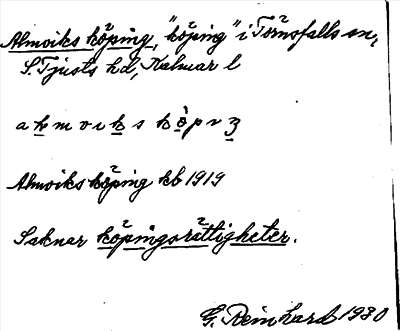 Almviks köping, "köping" i Törnsfalls sn,
S. Tjusts hd, Kalmar l
Almviks köping kb 1919
Saknar köpingsrättigheter.
G. Reinhard 1930